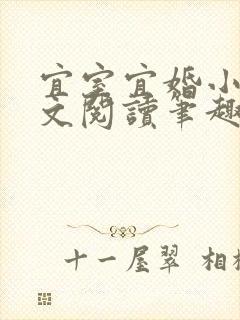 宜室宜婚小
文閱讀筆趣
十一屋翠 相